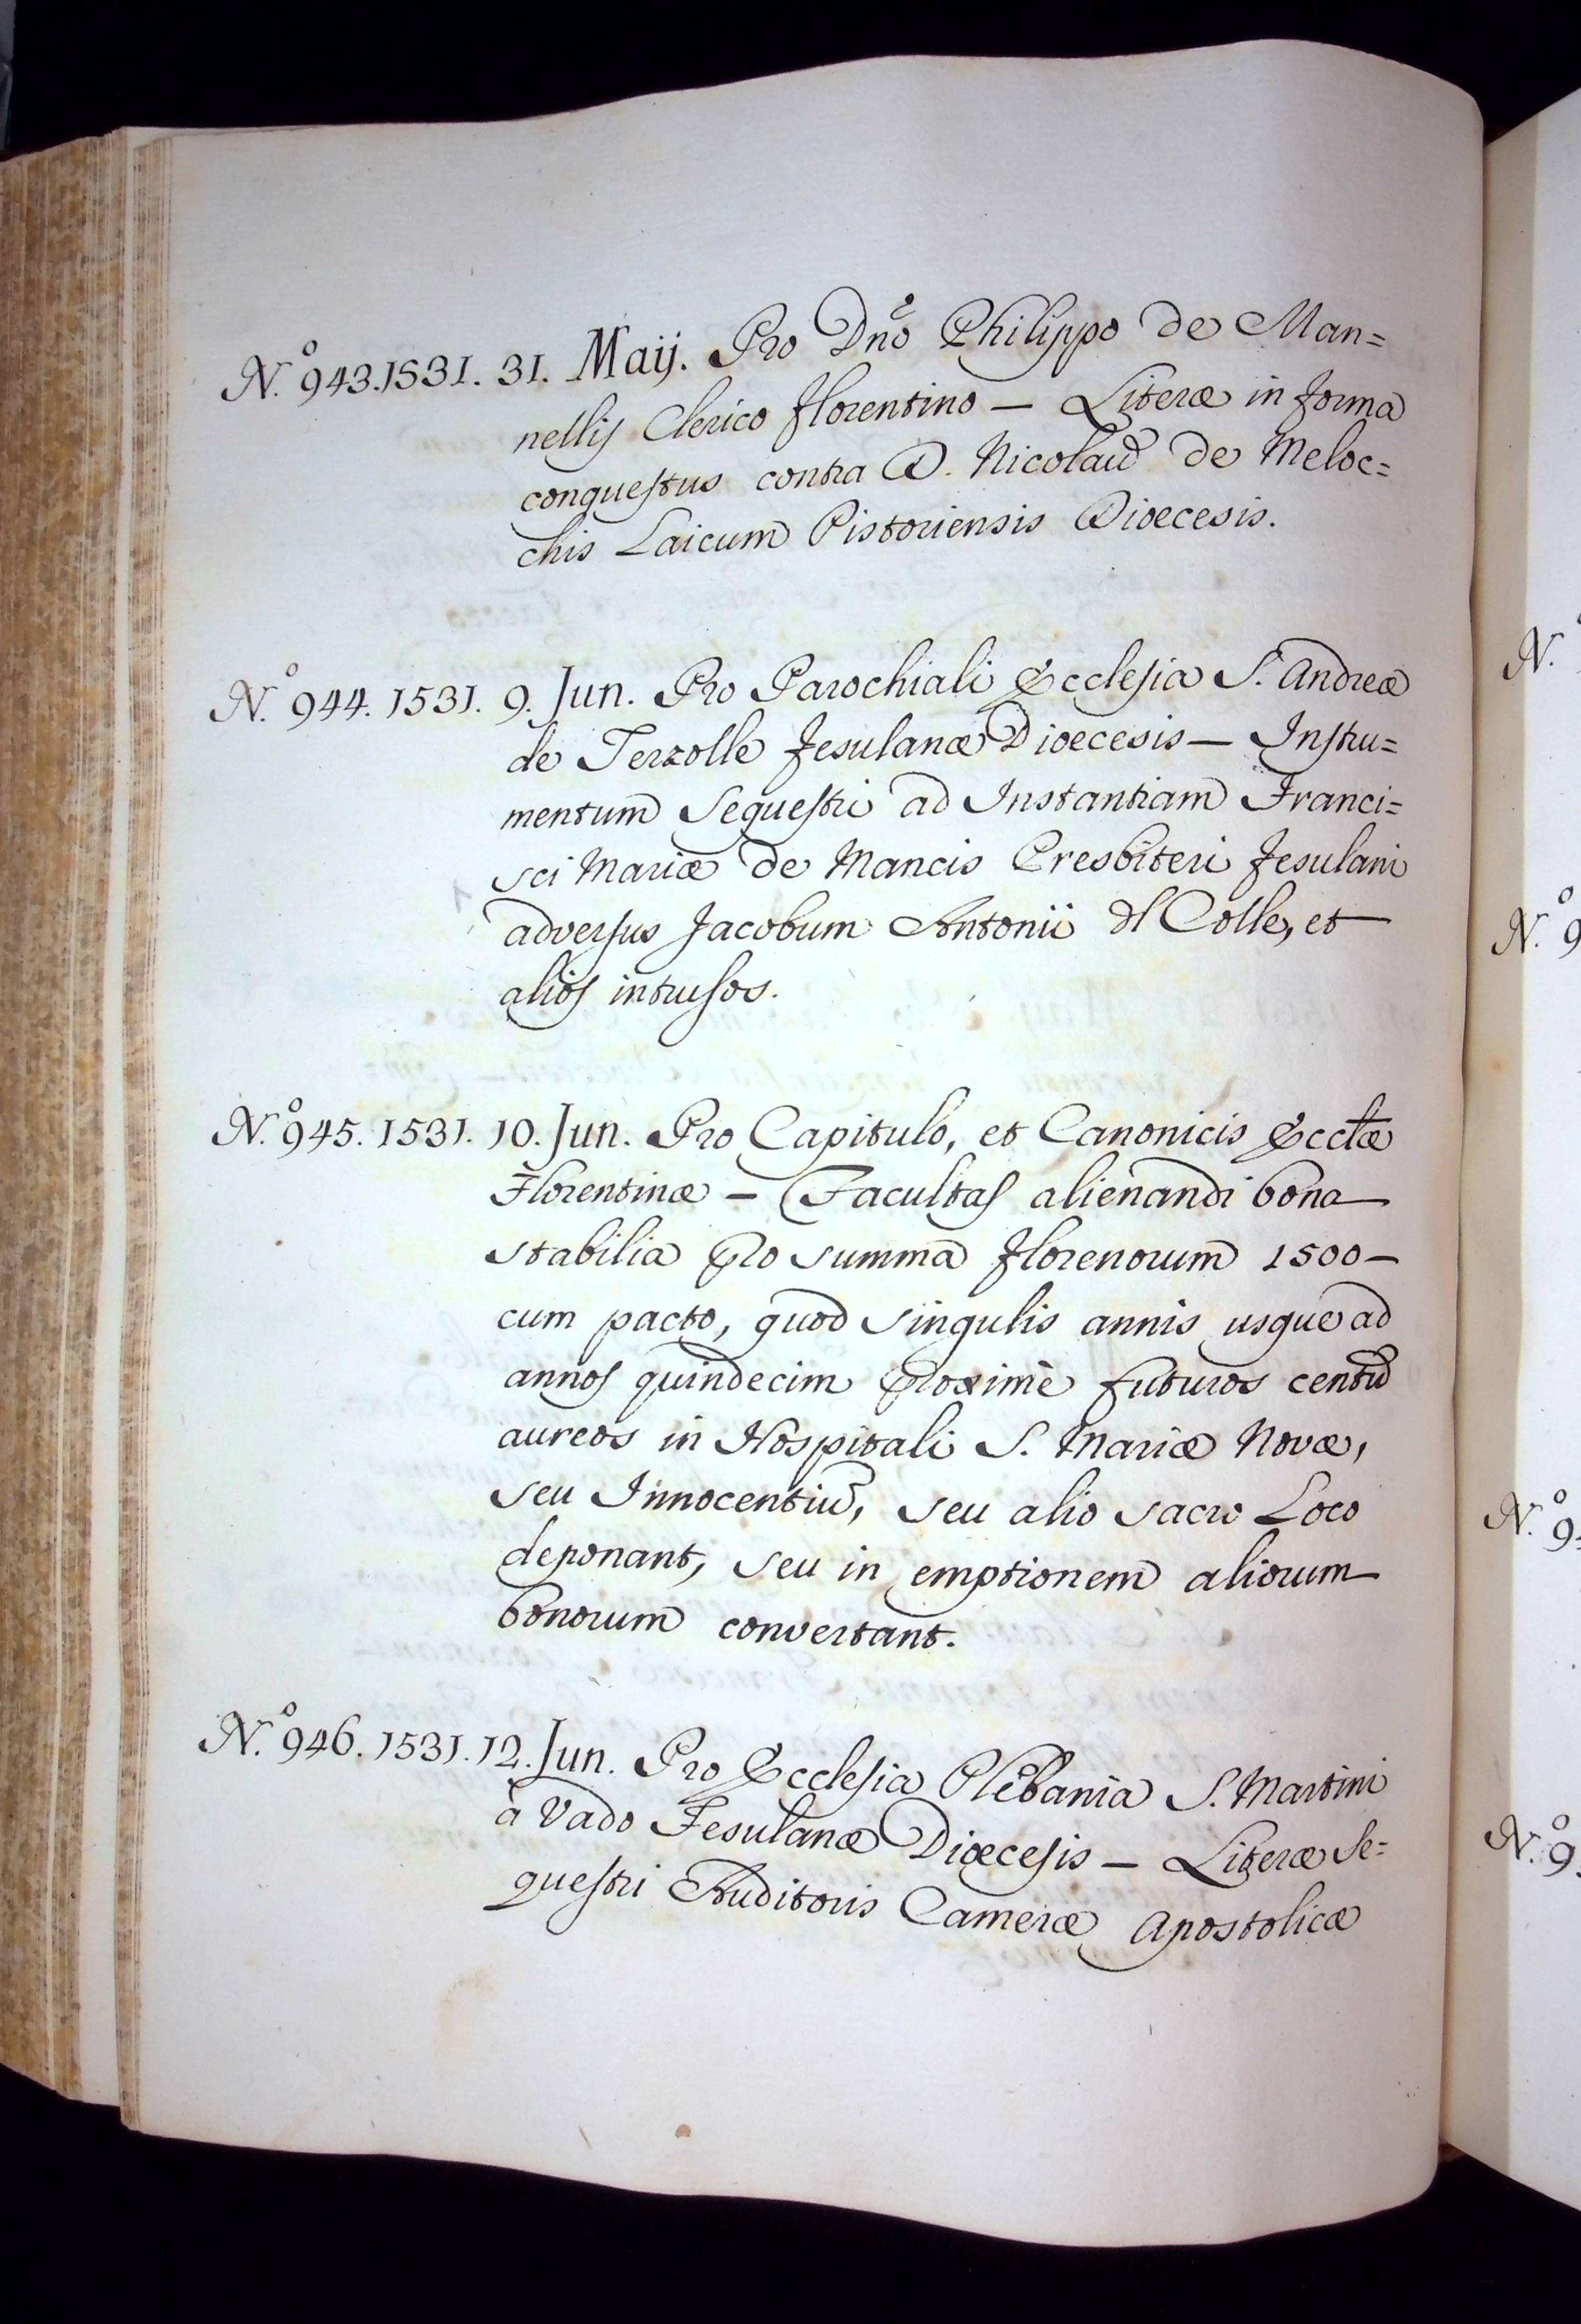 N.º 943. 1531. 31. Maij. Pro Dño Philippo de Man=
nellis Clerico Florentino — Literæ in forma
conquestus contra D. Nicolaũ de Meloc=
chis Laicum Pistoriensis Dioecesis.
N.º 944. 1531. 9. Jun. Pro Parochiali Ecclesia S. Andreæ
de Terzolle Fesulanæ Dioecesis — Instru=
mentum Sequestri ad Instantiam Franci=
sci Mariæ de Mancis Presbiteri Fesulani
adversus Jacobum Antonii dl Colle, et
alios intrusos.
N.º 945. 1531. 10. Jun. Pro Capitulo, et Canonicis Ecclæ
Florentinæ — Facultas alienandi bona
stabilia pro summa Florenorum 1500 —
cum pacto, quod singulis annis usque ad
annos quindecim proximè futuros centũ
aureos in Hospitali S. Mariæ Novæ,
seu Innocentiũ, seu alio sacro Loco
deponant, seu in emptionem aliorum
bonorum convertant.
N.º 946. 1531. 12. Jun. Pro Ecclesia Plebania S. Martini
à Vado Fesulanæ Diœcesis — Literæ Se=
questri Auditoris Cameræ Apostolicæ
N.
N.º 9
N.º 9
N.º 9